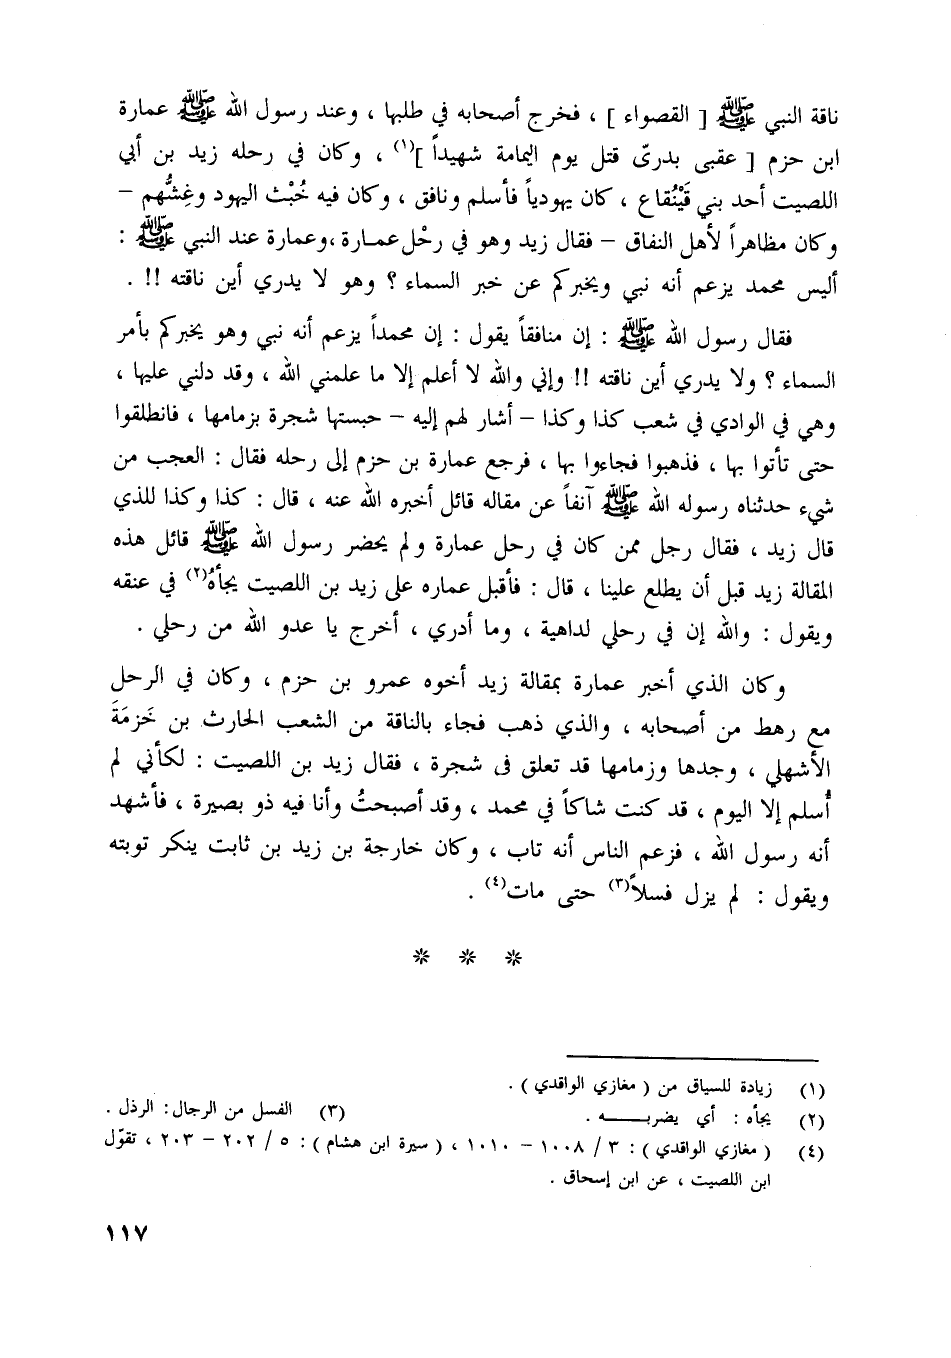 ناقة النبي ﷺ [ القصواء ] ، فخرج أصحابه في طلبها ، وعند رسول الله ﷺ عمارة
ابن حزم [ عقبى بدرىّ قتل يوم اليمامة شهيداً ](١) ، وكان في رحله زيد بن أبي
اللصيت أحد بني قَيْنُقاع ، كان يهودياً فأسلم ونافق ، وكان فيه خُبْث اليهود وغِشُّهم –
وكان مظاهراً لأهل النفاق – فقال زيد وهو في رحْل عمارة ، وعمارة عند النبي ﷺ :
أليس محمد يزعم أنه نبي ويخبركم عن خبر السماء ؟ وهو لا يدري أين ناقته !! .
فقال رسول الله ﷺ : إن منافقاً يقول : إن محمداً يزعم أنه نبي وهو يخبركم بأمر
السماء ؟ ولا يدري أين ناقته !! وإني والله لا أعلم إلا ما علمني الله ، وقد دلني عليها ،
وهي في الوادي في شعب كذا وكذا – أشار لهم إليه – حبستها شجرة بزمامها ، فانطلقوا
حتى تأتوا بها ، فذهبوا فجاءوا بها ، فرجع عمارة بن حزم إلى رحله فقال : العجب من
شيء حدثناه رسوله الله ﷺ آنفاً عن مقاله قائل أخبره الله عنه ، قال : كذا وكذا للذي
قال زيد ، فقال رجل ممن كان في رحل عمارة ولم يحضر رسول الله ﷺ قائل هذه
المقالة زيد قبل أن يطلع علينا ، قال : فأقبل عماره على زيد بن اللصيت يجأهُ(٢) في عنقه
ويقول : والله إن في رحلي لداهية ، وما أدري ، أخرج يا عدو الله من رحلي .
وكان الذي أخبر عمارة بمقالة زيد أخوه عمرو بن حزم ، وكان في الرحل
مع رهط من أصحابه ، والذي ذهب فجاء بالناقة من الشعب الحارث بن خَزمَةَ
الأشهلي ، وجدها وزمامها قد تعلق فى شجرة ، فقال زيد بن اللصيت : لكأني لم
أُسلم إلا اليوم ، قد كنت شاكاً في محمد ، وقد أصبحتُ وأنا فيه ذو بصيرة ، فأشهد
أنه رسول الله ، فزعم الناس أنه تاب ، وكان خارجة بن زيد بن ثابت ينكر توبته
ويقول : لم يزل فسلاً(٣) حتى مات(٤) .
* * *
(١) زيادة للسياق من ( مغازي الواقدي ) .
(٢) يجأه : أي يضربه . (٣) الفسل من الرجال: الرذل .
(٤) ( مغازي الواقدي ) : ٣ / ١٠٠٨ – ١٠١٠ ، ( سيرة ابن هشام ) : ٥ / ٢٠٢ – ٢٠٣ ، تقوّل
ابن اللصيت ، عن ابن إسحاق .
١١٧